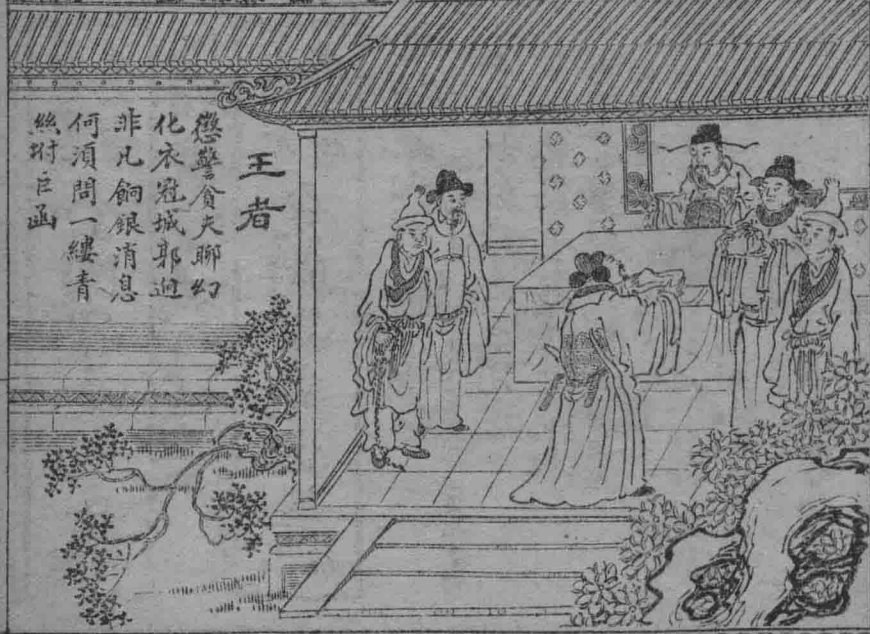 王者
懲警貪夫聊幻
化衣冠城郭逈
非凡餉銀消息
何湏問一縷青
絲坿巨函